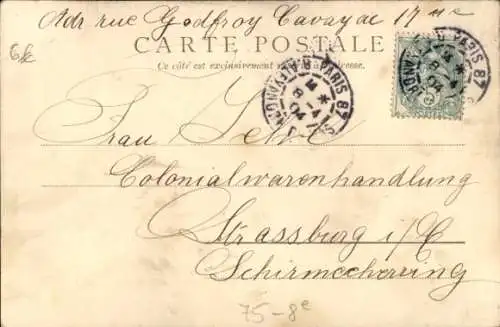 Adr rue Godfroy Cavayac 17me
CARTE POSTALE
Ce côté est exclusivement réservé à l'adresse.
6k
PARIS 87
8 -4
04
PARIS 87
8 -4
04
Frau
Colonialwarenhandlung
Strassburg i/E
75-8e